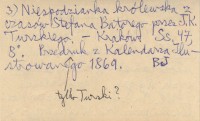 3) Niespodzianka królewska z
czasów Stefana Batorego przez J.K.
Turskiego. – Kraków Ss. 47,
8°. Przedruk z Kalendarza Illu-
strowanego 1869.
tylko Turski?